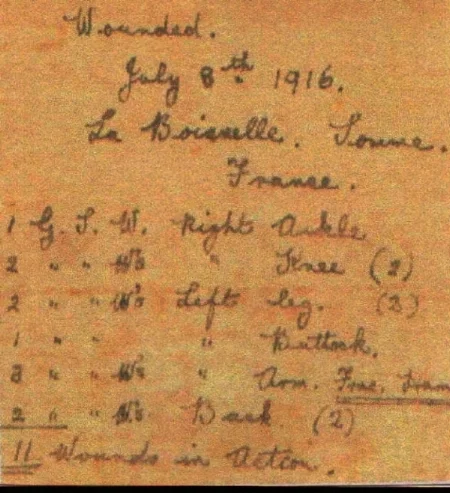 Wounded.
July 8th 1916.
La Boisselle. Somme.
France.
1 G. S. W. Right Ankle
2 " " W's " Knee (2)
2 " " W's Left leg. (2)
1 " " " Buttock.
3 " " W's " Arm. Frac.
2 " " W's Back (2)
11 Wounds in Action.